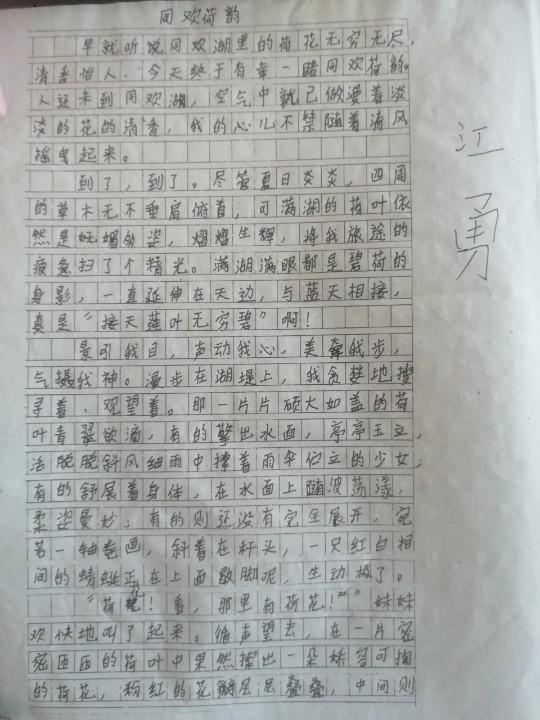 同欢荷韵
早就听说同欢湖里的荷花无穷无尽,
清香怡人,今天终于有幸一睹同欢荷韵。
人还未到同欢湖,空气中就已做漫着淡
淡的花的清香,我的心儿不禁随着清风
摇曳起来。
到了,到了。尽管夏日炎炎,四周
的草木无不垂肩俯首,可满湖的荷叶依
然是妩媚多姿,熠熠生辉,将我旅途的
疲惫扫了个精光。满湖满眼都是碧荷的
身影,一直延伸在天边,与蓝天相接,
真是“接天莲叶无穷碧”啊!
景引我目,声动我心,美牵我步,
气摄我神。漫步在湖堤上,我贪婪地搜
寻着、观望着。那一片片硕大如盖的荷
叶青翠欲滴,有的擎出水面,亭亭玉立,
活脱脱斜风细雨中撑着雨伞伫立的少女;
有的舒展着身体,在水面上随波荡漾,
柔姿曼妙;有的则还没有完全展开,宛
若一轴卷画,斜着在秆头,一只红白相
间的蜻蜓正在上面歇脚呢,生动极了。
“荷花!看,那里有荷花!”妹妹
欢快地叫了起来。循声望去,在一片密
密匝匝的荷叶中果然探出一朵妹容可掬
的荷花,粉红的花瓣层层叠叠,中间则
江勇